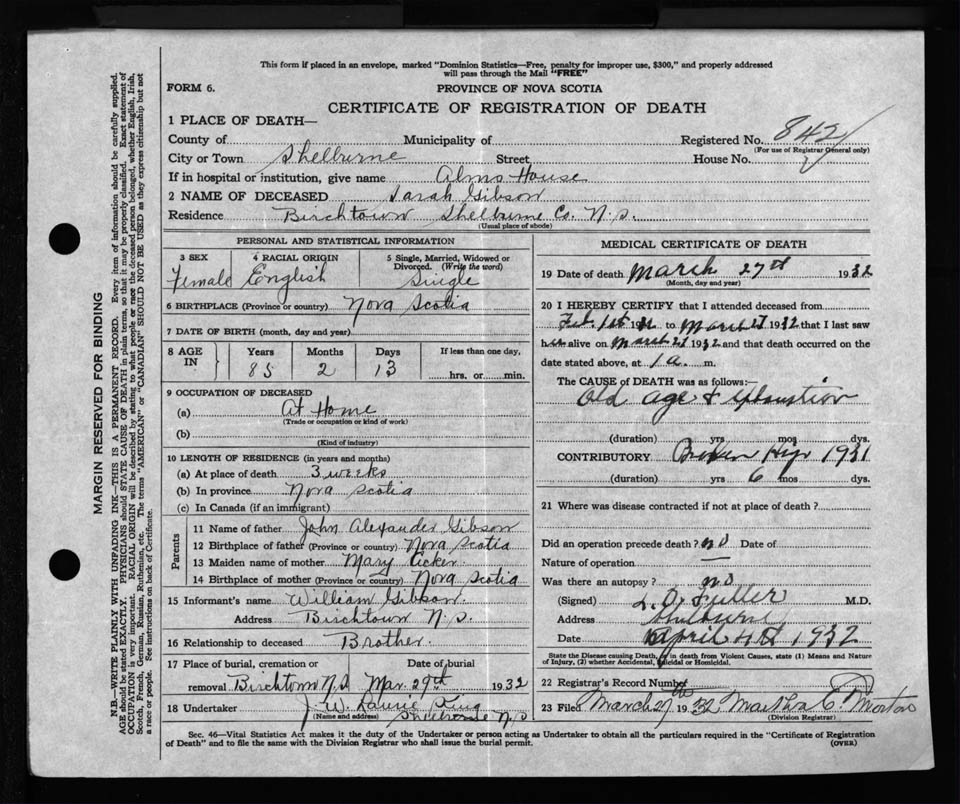 This form if placed in an envelope, marked "Dominion Statistics—Free, penalty for improper use, $300," and properly addressed
will pass through the Mail "FREE"
FORM 6.
PROVINCE OF NOVA SCOTIA
CERTIFICATE OF REGISTRATION OF DEATH
1 PLACE OF DEATH—
County of Municipality of Registered No. 842
(For use of Registrar General only)
City or Town Shelburne Street House No.
If in hospital or institution, give name Alms House
2 NAME OF DECEASED Sarah Gibson
Residence Birchtown Shelburne Co. N.S.
(Usual place of abode)
PERSONAL AND STATISTICAL INFORMATION
3 SEX 4 RACIAL ORIGIN 5 Single, Married, Widowed or Divorced. (Write the word)
Female English Single
6 BIRTHPLACE (Province or country) Nova Scotia
7 DATE OF BIRTH (month, day and year)
8 AGE IN Years Months Days If less than one day,
85 2 13 hrs. or min.
9 OCCUPATION OF DECEASED
(a) At Home
(Trade or occupation or kind of work)
(b)
(Kind of industry)
10 LENGTH OF RESIDENCE (in years and months)
(a) At place of death 3 weeks
(b) In province Nova Scotia
(c) In Canada (if an immigrant)
Parents
11 Name of father John Alexander Gibson
12 Birthplace of father (Province or country) Nova Scotia
13 Maiden name of mother Mary
14 Birthplace of mother (Province or country) Nova Scotia
15 Informant's name William Gibson
Address Birchtown N.S.
16 Relationship to deceased Brother.
17 Place of burial, cremation or Date of burial
removal Birchtown N.S Mar. 29th 1932
18 Undertaker J. W. Laurie King
(Name and address) Shelburne N.S
MEDICAL CERTIFICATE OF DEATH
19 Date of death March 27th 1932
(Month, day and year)
20 I HEREBY CERTIFY that I attended deceased from
Feb. 1st 1932 to March 27 1932 that I last saw
her alive on March 27 1932 and that death occurred on the
date stated above, at 1 a. m.
The CAUSE of DEATH was as follows:—
Old age & Exhaustion
(duration) yrs mos dys.
CONTRIBUTORY Broken Hip 1931
(duration) yrs 6 mos dys.
21 Where was disease contracted if not at place of death?
Did an operation precede death? no Date of
Nature of operation —
Was there an autopsy? no
(Signed) L. O. Fuller M.D.
Address Shelburne
Date April 4th 1932
State the Disease causing Death, or in death from Violent Causes, state (1) Means and Nature
of Injury, (2) whether Accidental, Suicidal or Homicidal.
22 Registrar's Record Number
23 Filed March 27th 1932 Martha C. Morton
(Division Registrar)
Sec. 46—Vital Statistics Act makes it the duty of the Undertaker or person acting as Undertaker to obtain all the particulars required in the "Certificate of Registration
of Death" and to file the same with the Division Registrar who shall issue the burial permit. (OVER)
MARGIN RESERVED FOR BINDING
N.B.—WRITE PLAINLY WITH UNFADING INK—THIS IS A PERMANENT RECORD. Every item of information should be carefully supplied.
AGE should be stated EXACTLY. PHYSICIANS should STATE CAUSE OF DEATH in plain terms, so that it may be properly classified. Exact statement of
OCCUPATION is very important. RACIAL ORIGIN will be described by stating to what people or race the deceased person belonged, whether English, Irish,
Scotch, French, German, Russian, Ruthenian, etc. The terms "AMERICAN" or "CANADIAN" SHOULD NOT BE USED as they express citizenship but not
a race or people. See instructions on back of Certificate.